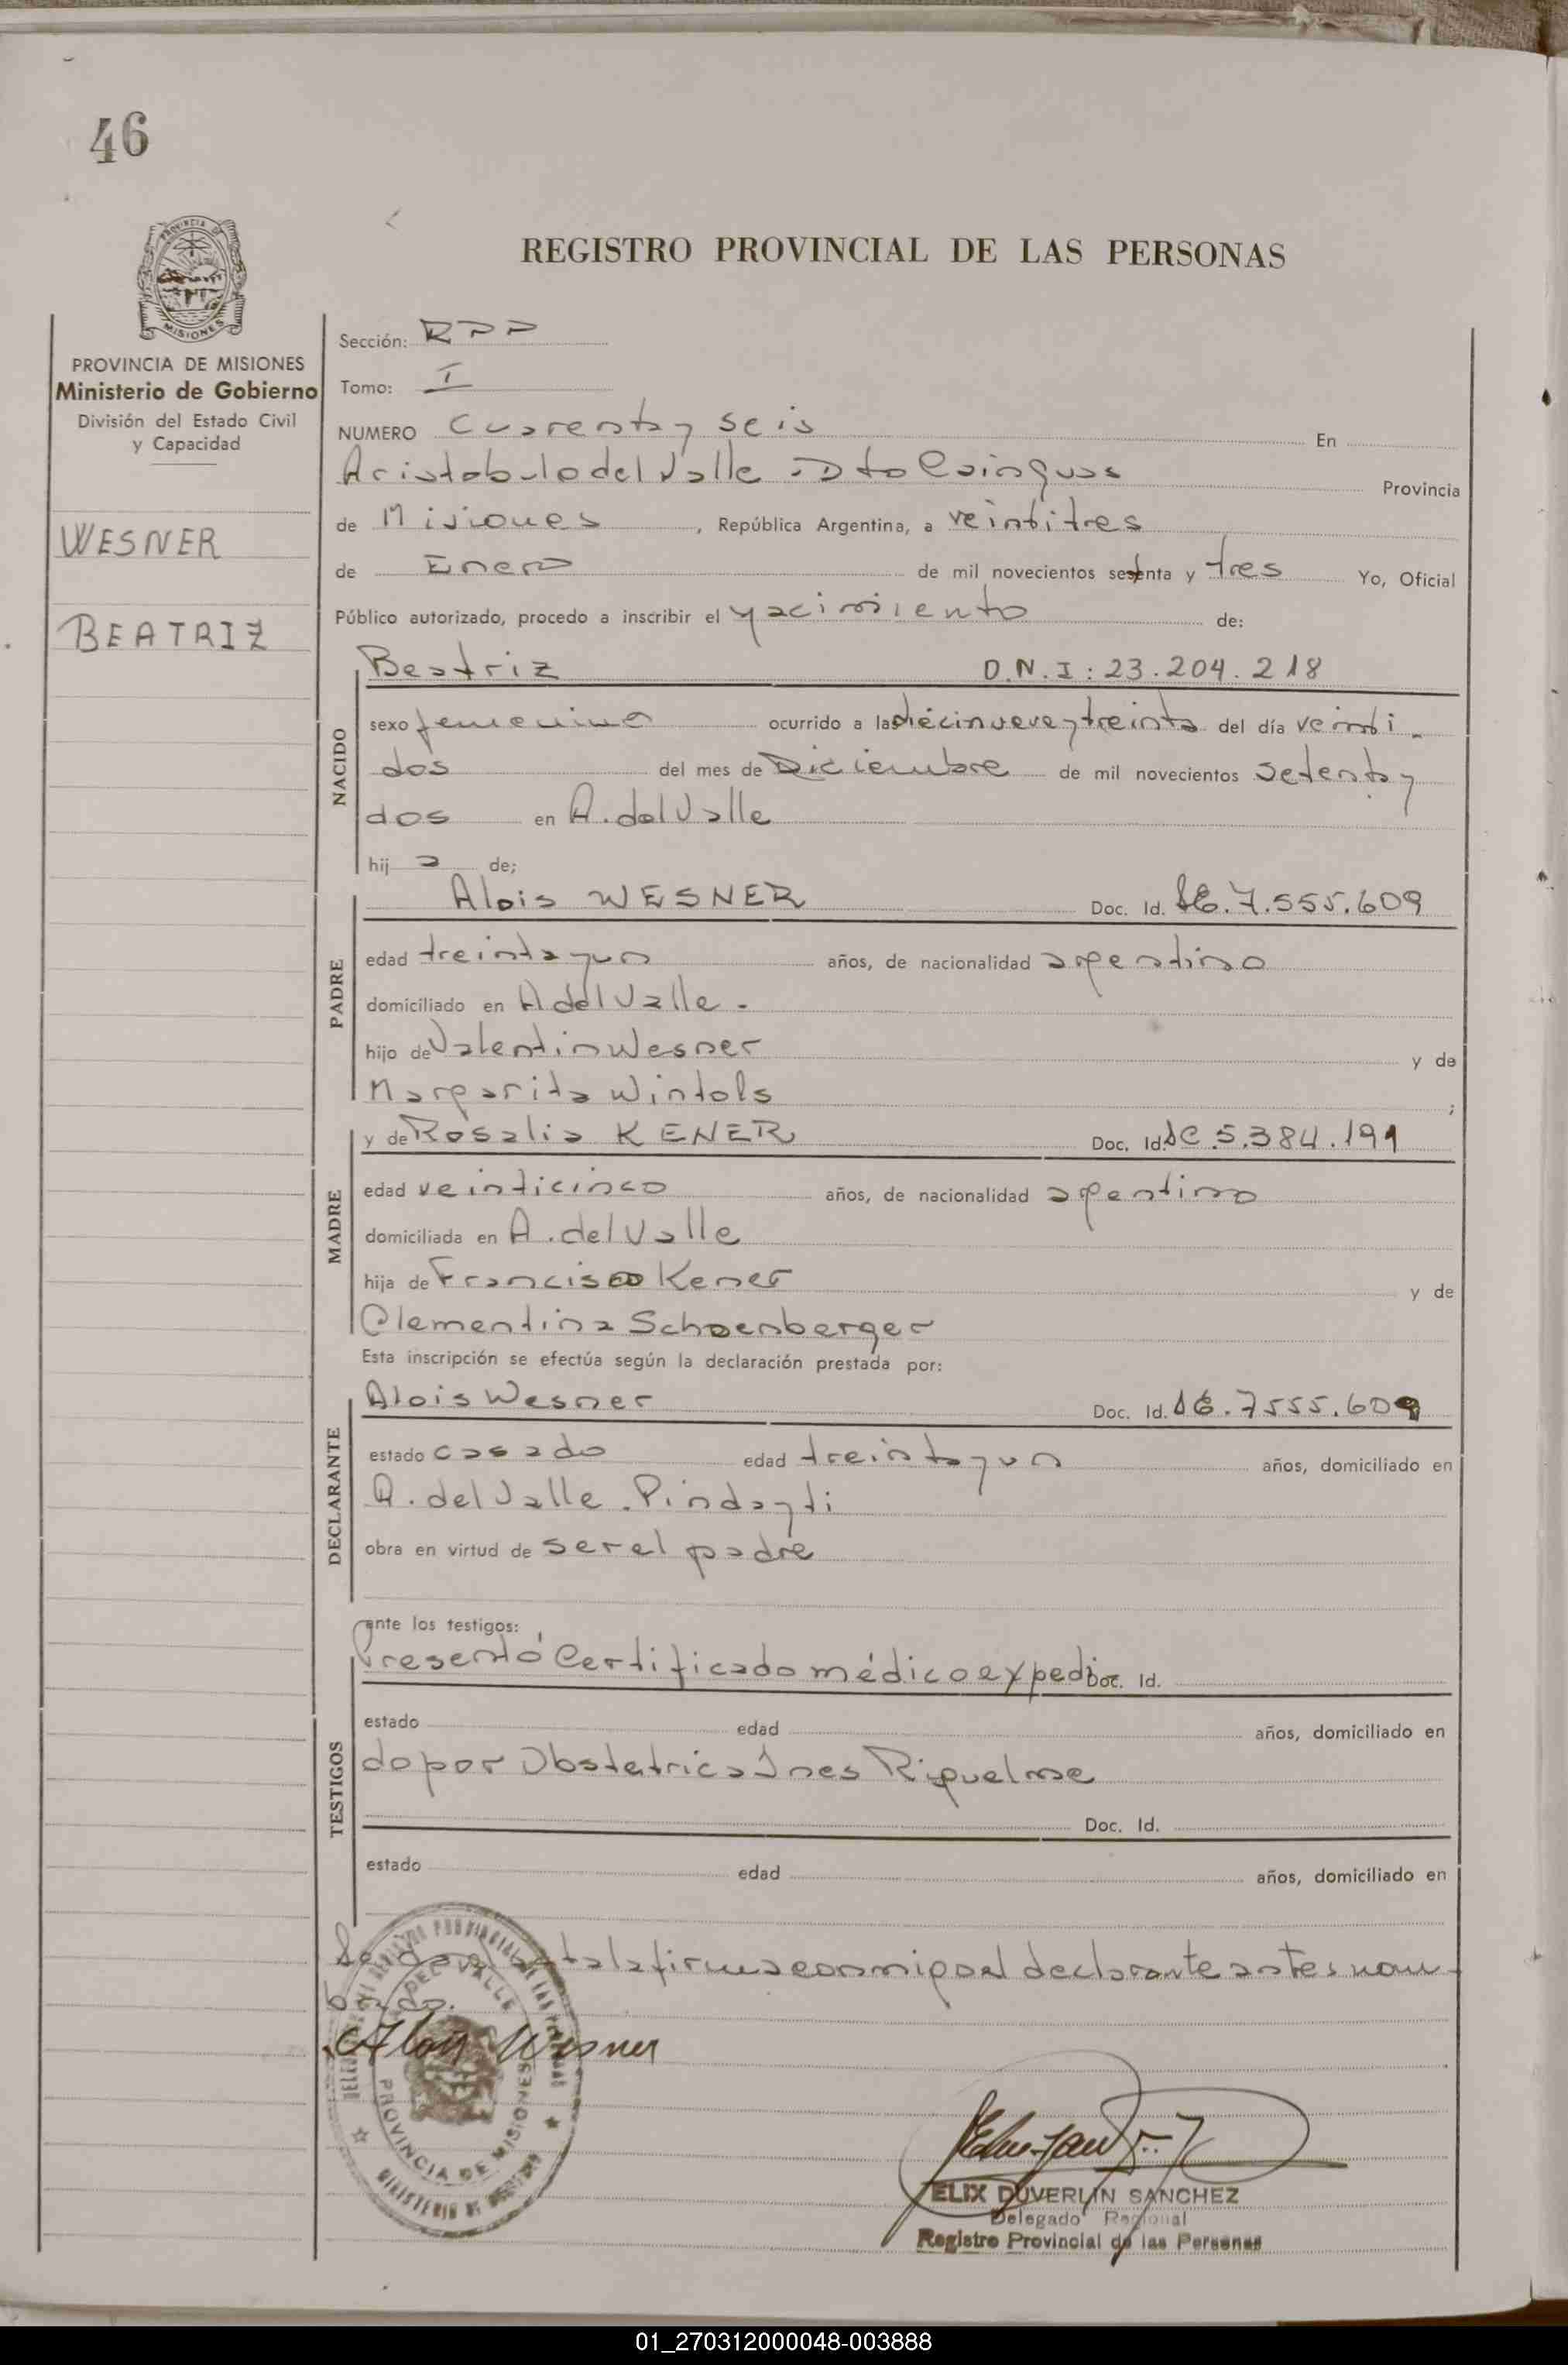 46
REGISTRO PROVINCIAL DE LAS PERSONAS
PROVINCIA DE MISIONES
Ministerio de Gobierno
División del Estado Civil
y Capacidad
WESNER
BEATRIZ
Sección: RPP
Tomo: I
NUMERO Cuarenta y seis En
Aristobulo del Valle - Dto Cainguas Provincia
de Misiones, República Argentina, a veintitres
de Enero de mil novecientos setenta y tres Yo, Oficial
Público autorizado, procedo a inscribir el nacimiento de:
Beatriz D.N.I: 23.204.218
NACIDO
sexo femenino ocurrido a las diecinueve y treinta del día veinti-
dos del mes de Diciembre de mil novecientos setenta y
dos en A. del Valle
hija de;
PADRE
Alois WESNER Doc. Id. 7.555.609
edad treinta y un años, de nacionalidad argentino
domiciliado en A del Valle -
hijo de Valentin Wesner y de
Margarita Wintols ;
MADRE
y de Rosalia KENER Doc. Id. 5.384.191
edad veinticinco años, de nacionalidad argentino
domiciliada en A. del Valle
hija de Francisco Kener y de
Clementina Schoenberger
Esta inscripción se efectúa según la declaración prestada por:
DECLARANTE
Alois Wesner Doc. Id. 7555.609
estado casado edad treinta y un años, domiciliado en
A. del Valle - Pindayti
obra en virtud de ser el padre
ante los testigos:
TESTIGOS
Presentó Certificado médico expedi Doc. Id.
estado edad años, domiciliado en
do por Obstetrica Ines Riquelme
Doc. Id.
estado edad años, domiciliado en
la firma conmigo el declarante antes nom-
brado.
Alois Wesner
A. DEL VALLE
PROVINCIA DE MISIONES
ELIX DUVERLIN SANCHEZ
Delegado Regional
Registro Provincial de las Personas
01_270312000048-003888